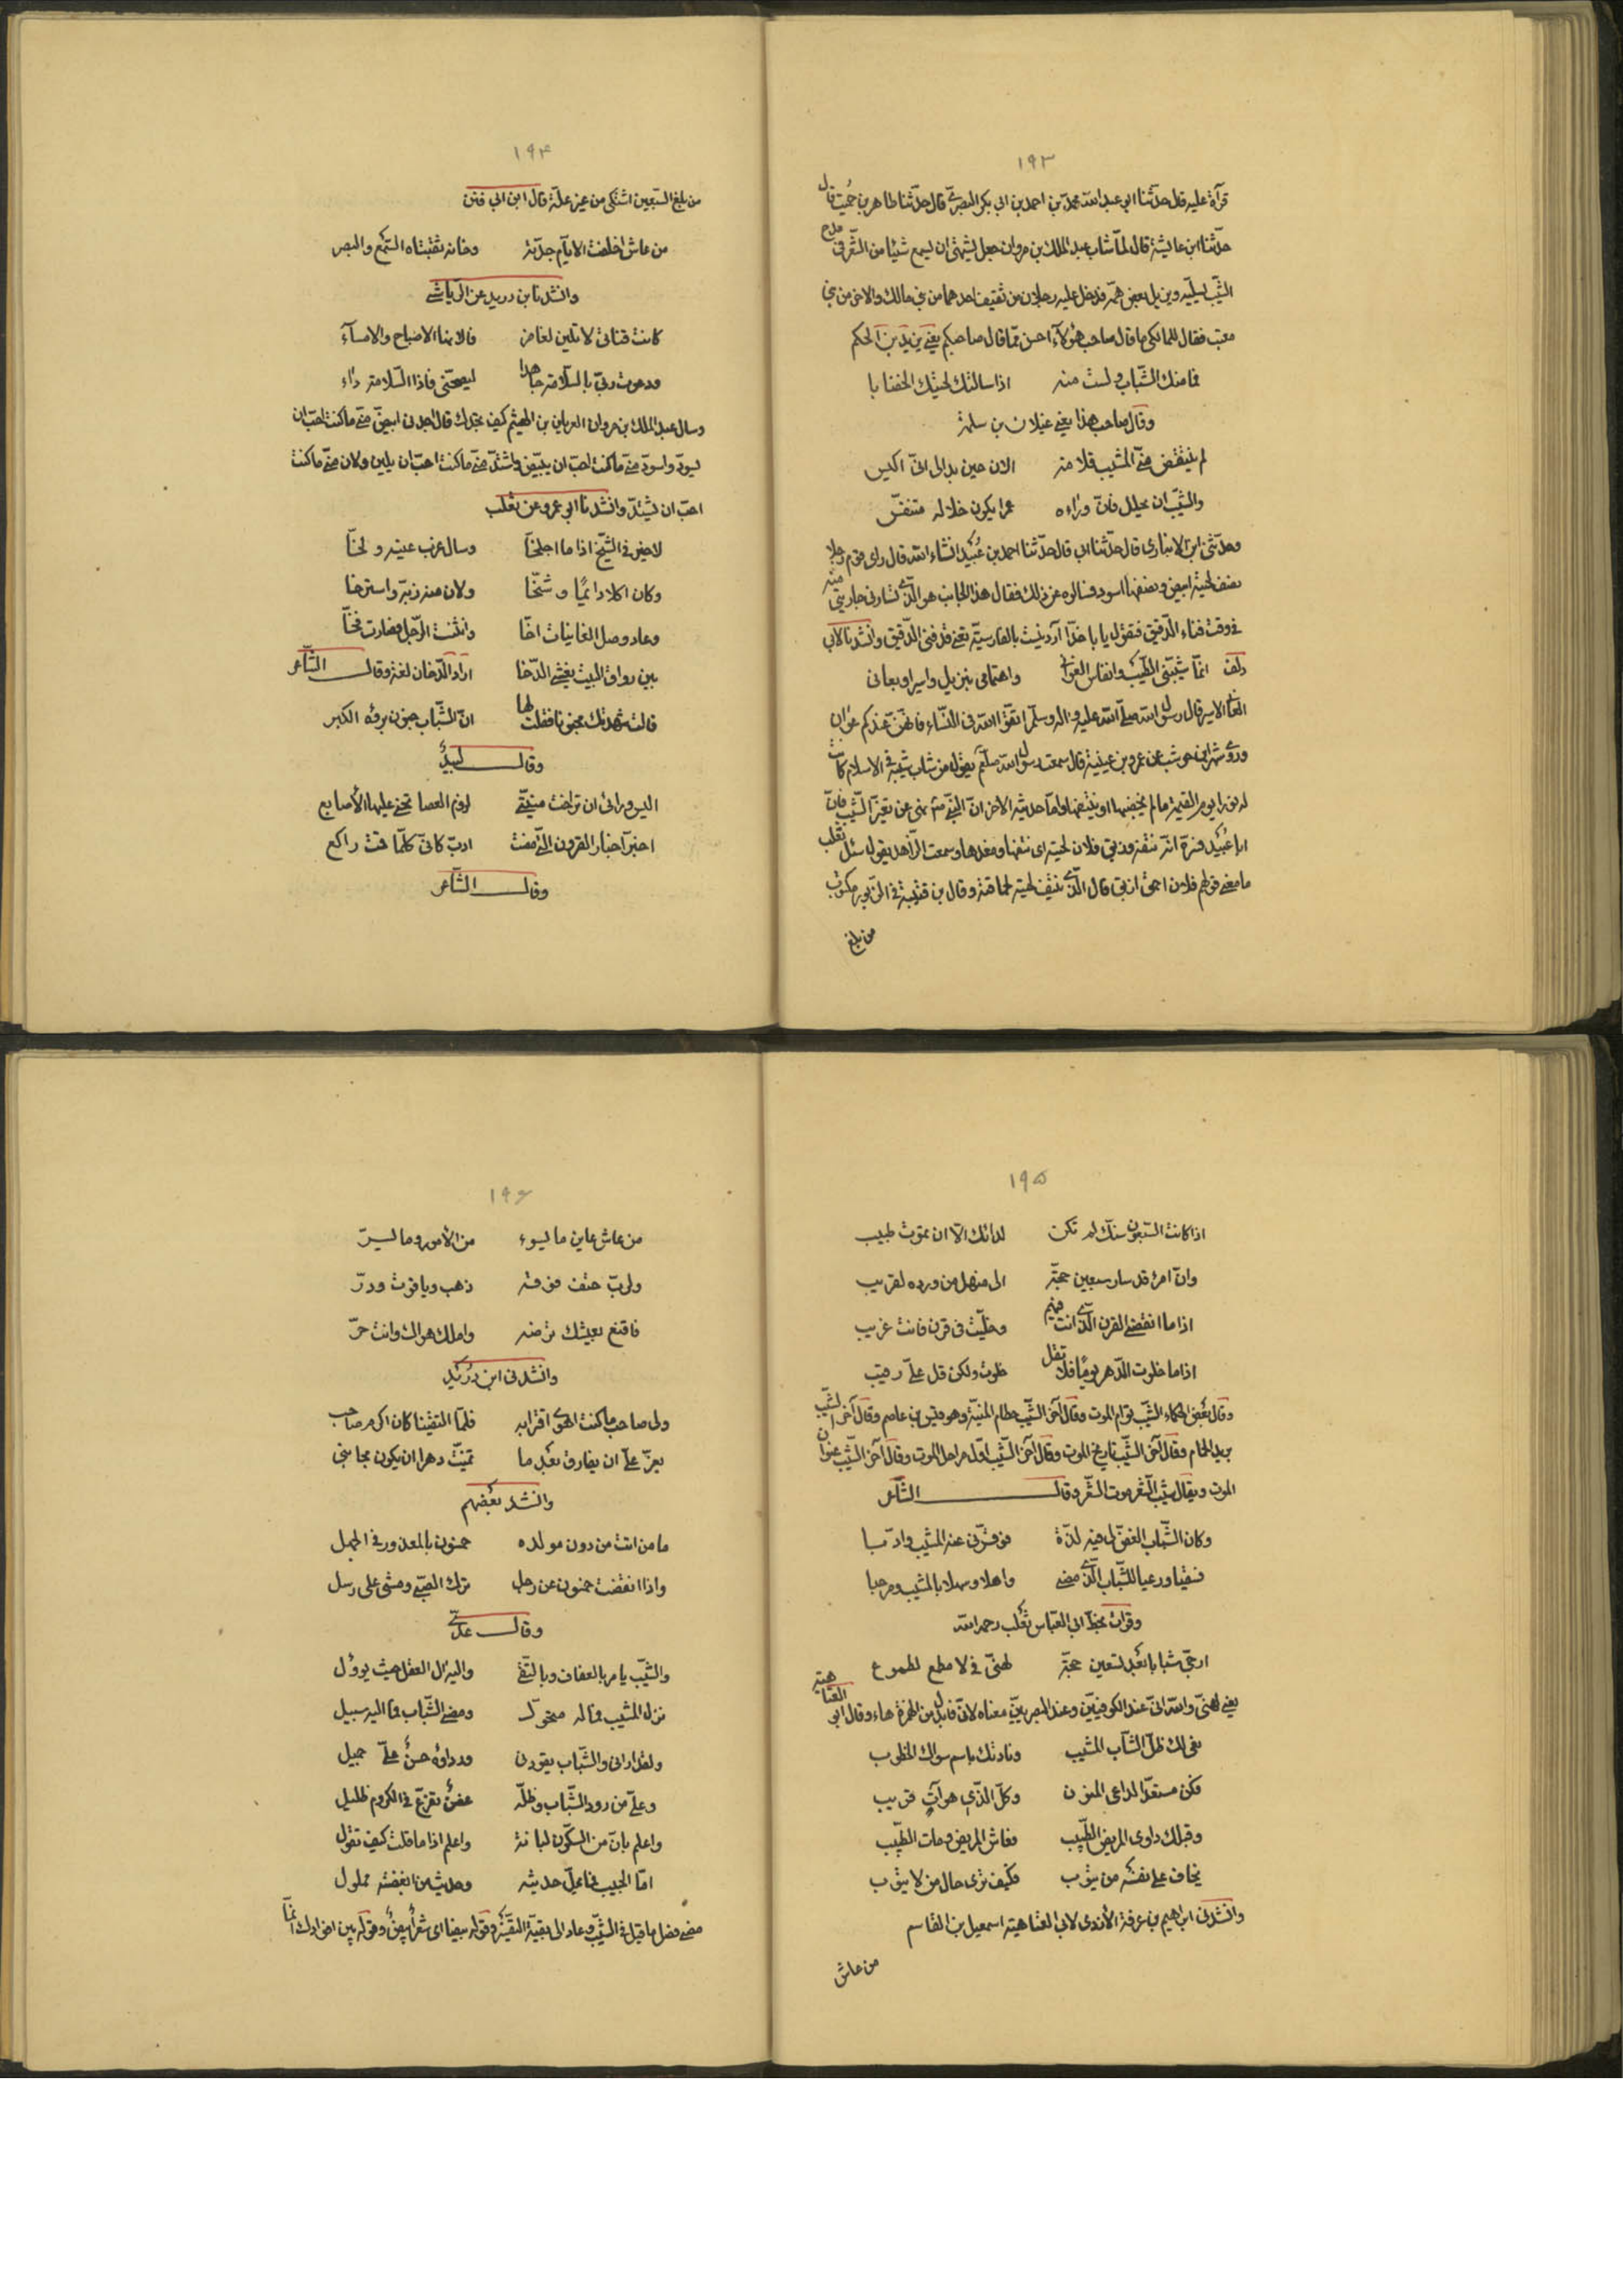 ١٩٣
قرآءة عليه قال حدّثنا ابو عبد الله محمّد بن احمد بن ابي بكر البصرىّ قال حدّثنا طاهر بن حُميت قال
حدّثنا ابن عايشة قال لمّا شاب عبد الملك بن مروان جعل يشتهى ان يسمع شيئا من الشّعر فى مدح
الشّيب ليسلّيه ويزيل بعض همّه فدخل عليه رجلان من ثقيف احدهما من بنى مالك والاخر من بنى
معتب فقال للمالكى ما قال صاحب هؤلاء احسن ممّا قال صاحبكم يعنى يزيد بن الحكم
فما منك الشّباب ولست منه اذا سالتك لحيتك الخضابا
وقال صاحب هذا يعنى غيلان بن سلمة
لم ينتقص منّى المشيب قلامة الان حين بدا لى الىّ اكيس
والشّيب ان يحلل فانّ وراءه عمرا يكون خلاله متنفّس
وحدّثنى ابن الانبارى قال حدّثنا ابى قال حدّثنا احمد بن عُبيد انشاء الله قال راى قوم رجلا
نصف لحيته ابيض ونصفها اسود فسالوه عن ذلك فقال هذا الجانب هو الّذى تسارنى جاريتى منه
فى وقت فناء الدّقيق فتقول يا باخدا آرد نيست بالفارسيّة تعنى قد فنى الدّقيق وانشدنا لابى
دلف انّما شيّبنى الطّيب وانفاس الغوانى واهتمامى بنزيل واسير او بعانى
العانى الاسير قال رسول الله صلّى الله عليه واله وسلّم اتّقوا الله فى النّساء فانّهنّ عندكم عوان
وروى شهر ابن حوشب عن عمرو بن عيينة قال سمعت رسول الله صلّم يقول من شاب شيبة فى الاسلام كانت
له نورا يوم القيمة ما لم يخضبها او ينتفها وامّا حديثه الاخر انّ النّبىّ نهى عن تغيّر الشّيب فانّ
ابا عُبيد فسّره انّه نتفه وزبق فلان لحيته اى نتفها ومعدها وسمعت الزّاهد يقول سئل ثعلب
ما معنى قولهم فلان احمق ازبق قال الّذى ينتف لحيته لحماقته وقال بن قتيبة فى الزّبور مكتوب
من بلغ
١٩۴
من بلغ السّبعين اشتكى من غير علّة قال ابن ابى فنن
من عاش اخلقت الايّام جدّته وخانه ثقتاه السّمع والبصر
وانشدنا بن دريد عن الرّياشى
كانت قناتى لا تلين لغامز فالانها الاصباح والامساء
ودعوت ربّى بالسّلامة جاهدا ليصحّنى فاذا السّلامة داء
وسال عبد الملك بن مروان العريان بن الهيثم كيف تجدك قال اجدنى ابيضّ منّى ما كنت احبّ ان
يسودّ واسودّ منّى ما كنت احبّ ان يبيّض واشتدّ منّى ما كنت احبّ ان يلين ولان منّى ما كنت
احبّ ان يشتدّ وانشدنا ابو عمرو عن ثعلب
لا خير فى الشّيخ اذا ما اجلخّا وسال غرب عينه ولخّا
وكان اكلا دائمًا وشخّا ولان منه زبّه واسترخا
وعاد وصل الغانيات اخّا وانثنت الرّجل فصارت فخّا
بين رواق البيت يغشى الدّخا اراد الدّخان لغة وقال الشّاعر
قالت عهدتك مجنونا فقلت لها انّ الشّباب جنون برؤه الكبر
وقال لبيدٌ
اليس ورائى ان تراخت منيّتى لزوم العصا تحنى عليها الأصابع
اخبّر اخبار القرون الّتى مضت ادبّ كانّى كلّما قمت راكع
وقال الشّاعر
١٩۵
اذا كانت السّبعون سنّك لم تكن لدائك الّا ان تموت طبيب
وانّ امرء قد سار سبعين حجّة الى منهل من ورده لقريب
اذا ما انقضى القرن الّذى انت فيهم وخلّيت فى قرن فانت غريب
اذا ما خلوت الدّهر يومًا فلا تقل خلوت ولكن قل علىّ رقيب
وقال بعض الحكماء الشّيب توام الموت وقال آخر الشّيب حطام المنيّة وهو قيس بن عاصم وقال آخر الشّيب
بريد الحمام وقال آخر الشّيب تاريخ الموت وقال آخر الشّيب اوّل مراحل الموت وقال آخر الشّيب عنوان
الموت ويقال شيب الشّعر موت الشّعر وقال الشّاعر
وكان الشّباب الغضّ لى فيه لذّة فوقّرنى عنه المشيب وادّبا
فسقيا ورعيا للشّباب الّذى مضى واهلا وسهلا بالمشيب ومرحبا
وقرات بخطّ ابى العبّاس ثعلب رحمه الله
ارجّى شبابا بعد تسعين حجّة لهنّى فى لا مطمع لطموع
يعنى لهنّى والله انّى عند الكوفيّين وعند البصريّين معناه لانّى فابدل من الهمزة هاء وقال ابو العتاهية
نعى لك ظلّ الشّباب المشيب ونادتك باسم سواك الخطوب
فكن مستعدّا لداعى المنون وكلّ الّذى هو آتٍ قريب
وقبلك داوى المريض الطّبيب فعاش المريض ومات الطّبيب
يخاف على نفسه من يتوب فكيف ترى حال من لا يتوب
وانشدنى ابراهيم بن عرفة الأزدى لابى العتاهية اسمعيل بن القاسم
من عاش
١٩۶
من عاش عاين ما يسوء من الأمور وما يسرّ
ولربّ حتف فوقه ذهب وياقوت ودرّ
فاقنع بعيشك ترضه واملك هواك وانت حرّ
وانشدنى ابن دُرَيد
ولى صاحب ما كنت اهوى اقترابه فلمّا التقينا كان اكرم صاحب
يعزّ علىّ ان يفارق بعد ما تمنّيت دهرا ان يكون مجانبى
وانشد بعضهم
ما من اتت من دون مولده خمسون بالمعذور فى الجهل
واذا انقضت خمسون عن رجل ترك الصّبى ومشى على رسل
وقال عدىّ
والشّيب يامر بالعفاف وبالتّقى واليه ال العقل حيث يوؤل
نزل المشيب فما له متحوّل ومضى الشّباب فما اليه سبيل
ولقد ارانى والشّباب يقودنى ورداؤه حسنٌ علىّ جميل
وعلىّ من رود الشّباب وظلّه غصنٌ تفرّع فى الكروم ظليل
واعلم بانّ من السّكوت لبانة واعلم اذا ما قلت كيف تقول
امّا الحبيب فما يملّ حديثه وحديث من ابغضته مملول
مضى فصل ما قيل فى الشّيب وعاد الى بقيّة التفسير وقوله بيضا اى شعرٌ ابيضٌ وقوله بين اضرادك انّما